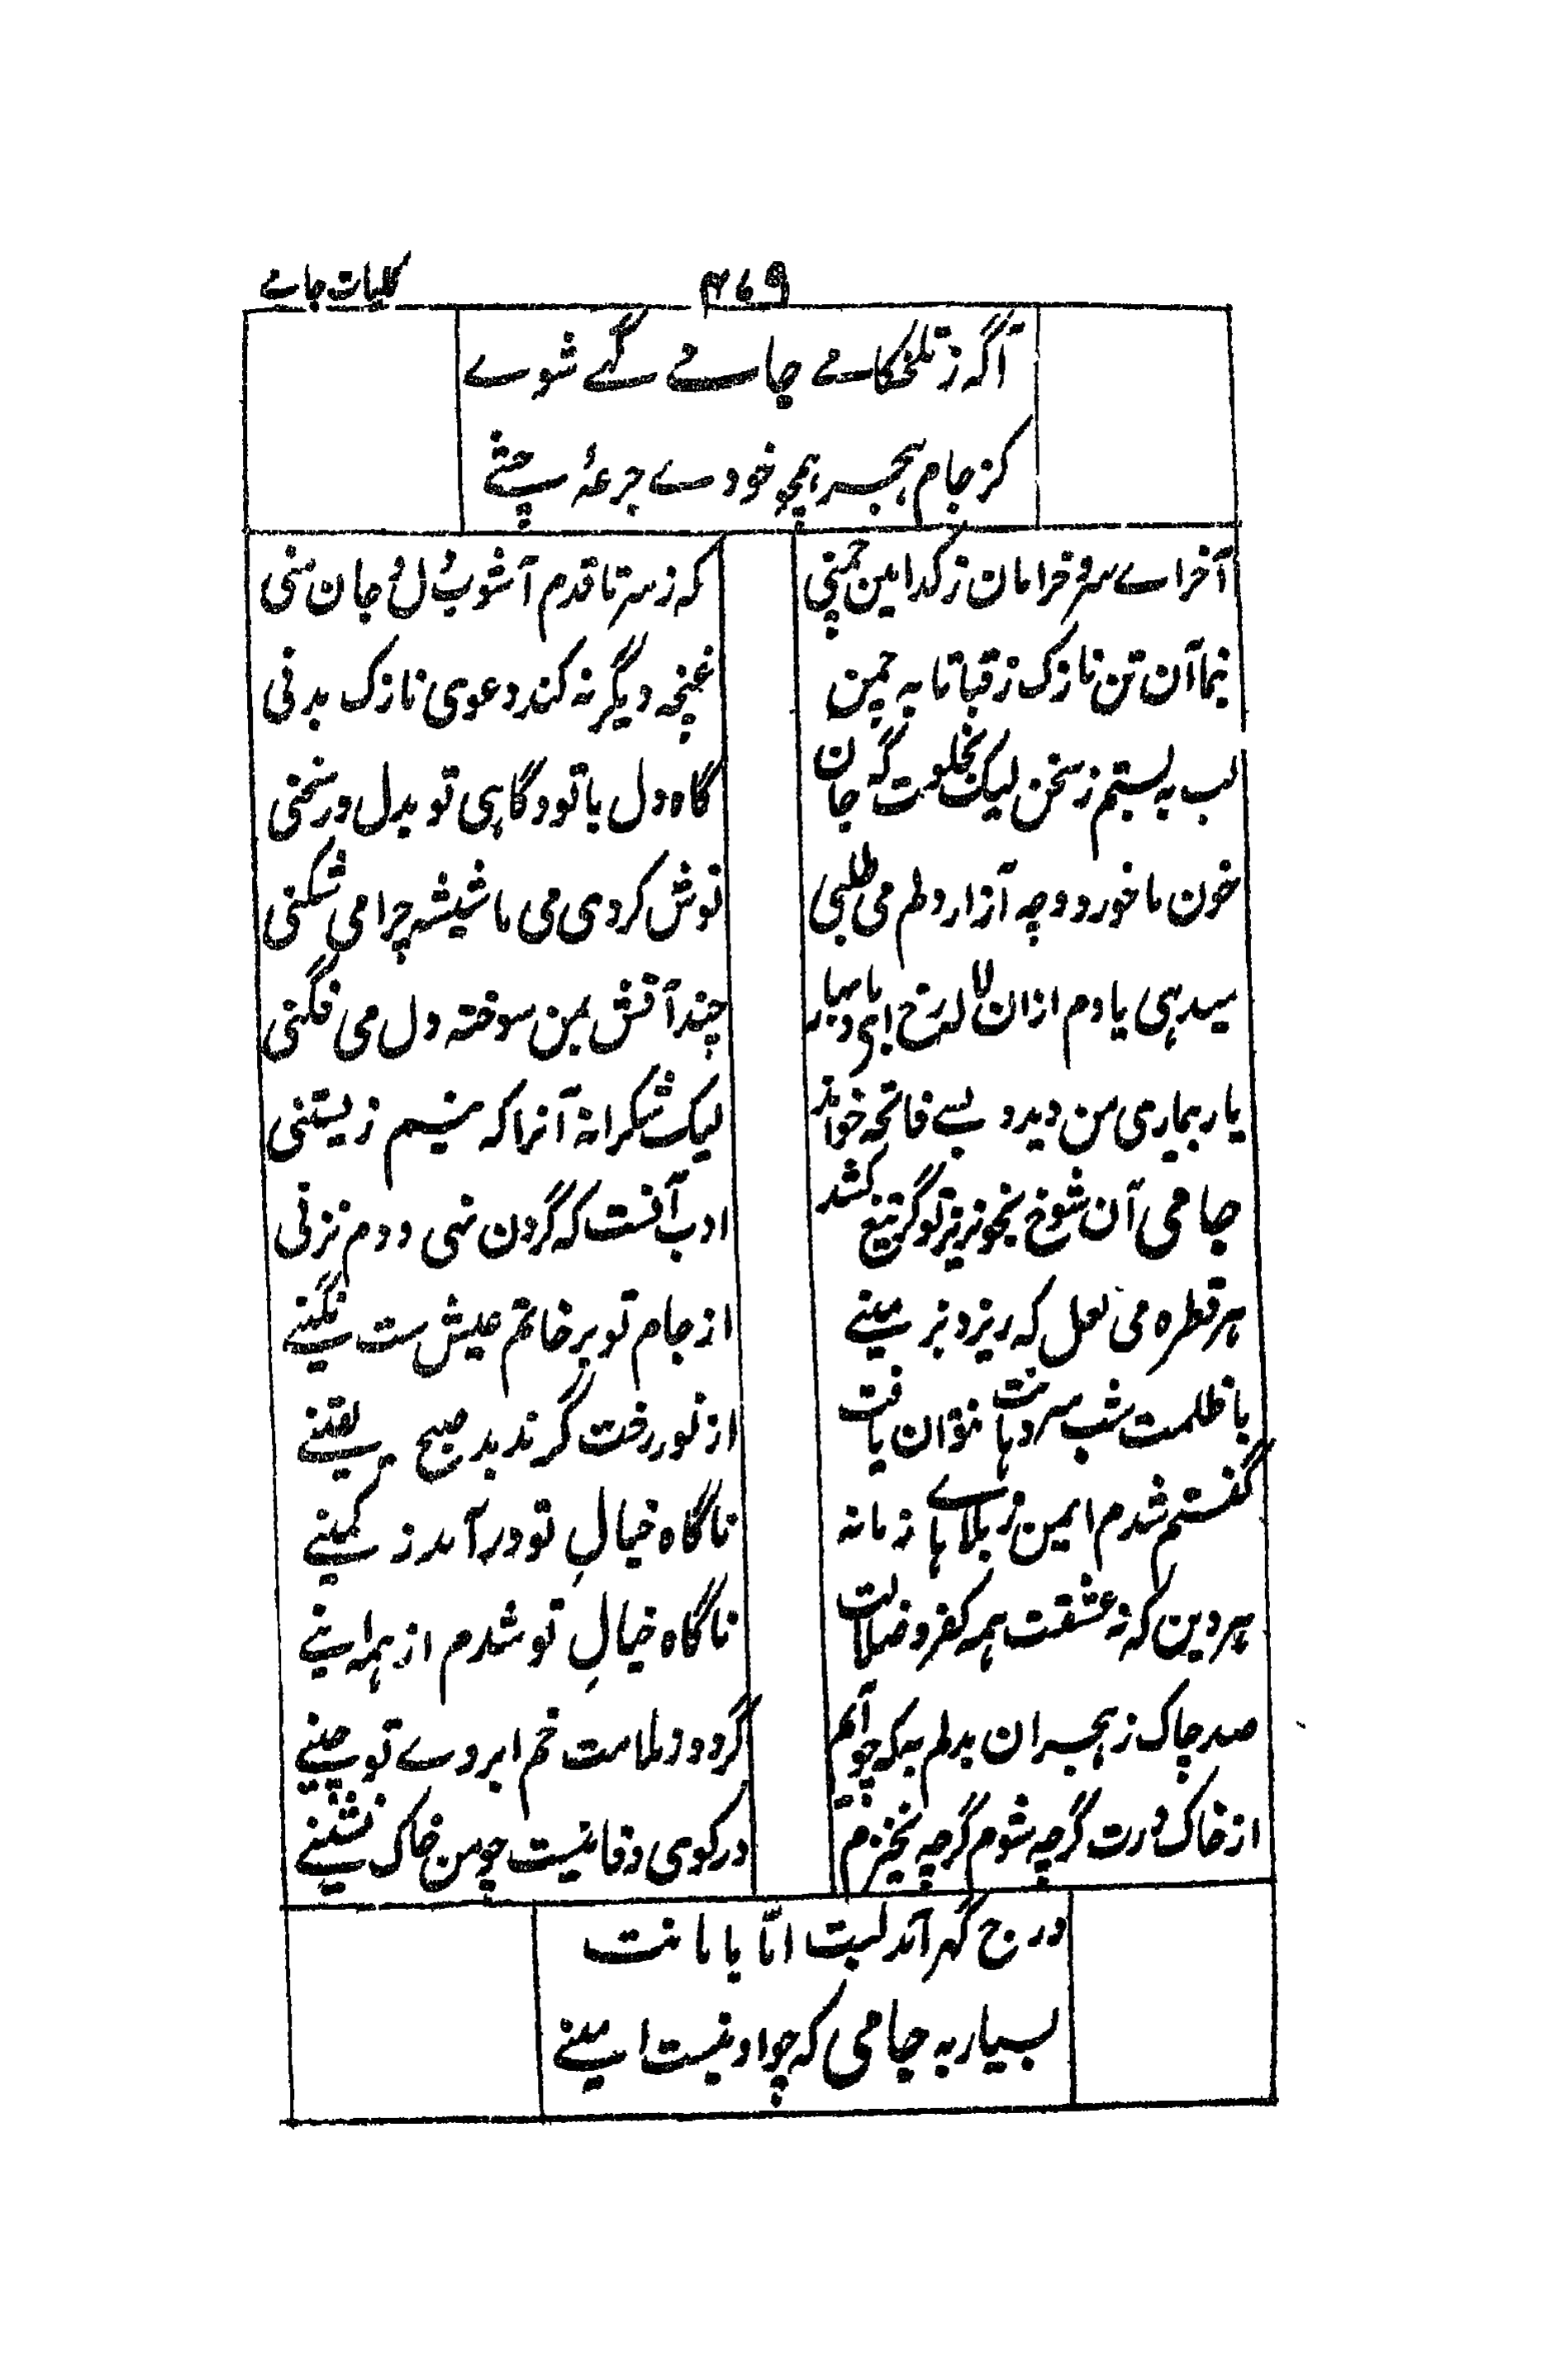 کلیات جامے
۴۶۹
آگہ ز تلخکامے جامے گہے شوے
کز جام ہجر ہمچو خودے جرعۂ چشے
آخر اے سرو خرامان ز کدامین چمنی
که ز سر تا قدم آشوب دل و جان منی
بنما آن تن نازک ز قبا تا به چمن
غنچه دیگر نه کند دعوی نازک بدنی
لب به بستم ز سخن لیک بخلوت گہ جان
گاه دل با تو و گاہی تو بدل در سخنی
خون ما خورد و چه آزار دلم می طلبی
نوش کردی می ما شیشه چرا می شکنی
میدہی یادم ازان لاله رخ ای باد بهار
چند آتش بمن سوخته دل می فگنی
یار بیماری من دید و بسے فاتحه خواند
لیک شکرانۂ آنرا که نیم زیستنی
جامی آن شوخ بخونریز تو گر تیغ کشد
ادب آنست که گردن نهی و دم نزنی
هر قطره می لعل که ریزد بزمینے
از جام تو بر خاتم عیش ست نگینے
با ظلمت شب سر دهانت نتوان یافت
از نور رخت گر ندبد صبح یقینے
گفتم شدم ایمن ز بلاہاے زمانه
ناگاه خیالِ تو درآمد ز کمینے
هر دین که نه عشقت همه کفر و ضلالت
ناگاه خیالِ تو شدم از همه دینے
صد چاک ز ہجران بدلم به که چو آیم
گردد ز ملامت خم ابروے تو چینے
از خاک درت گرچه شوم گرد نخیزم
در کوی وفا نیست چو من خاک نشینے
درج گهر آمد لبت امّا بامانت
بسیار به جامی که چو او نیست امینے